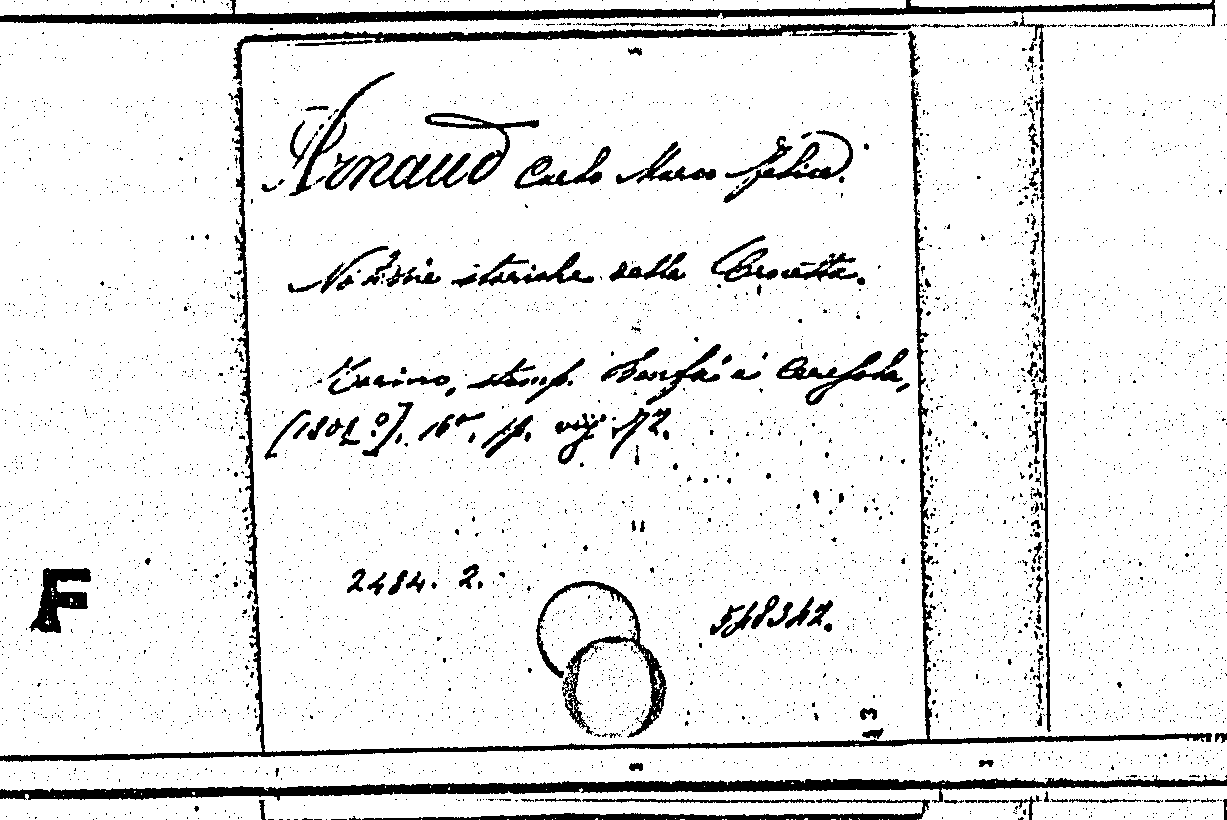 Arnaud Carlo Marco Felice.
Notizie storiche della Crocetta.
Torino, stamp. Bonfà ai Carefola,
[180 ?]. 16°, pp. viij 172.
2484. 2.
548342.
13
F